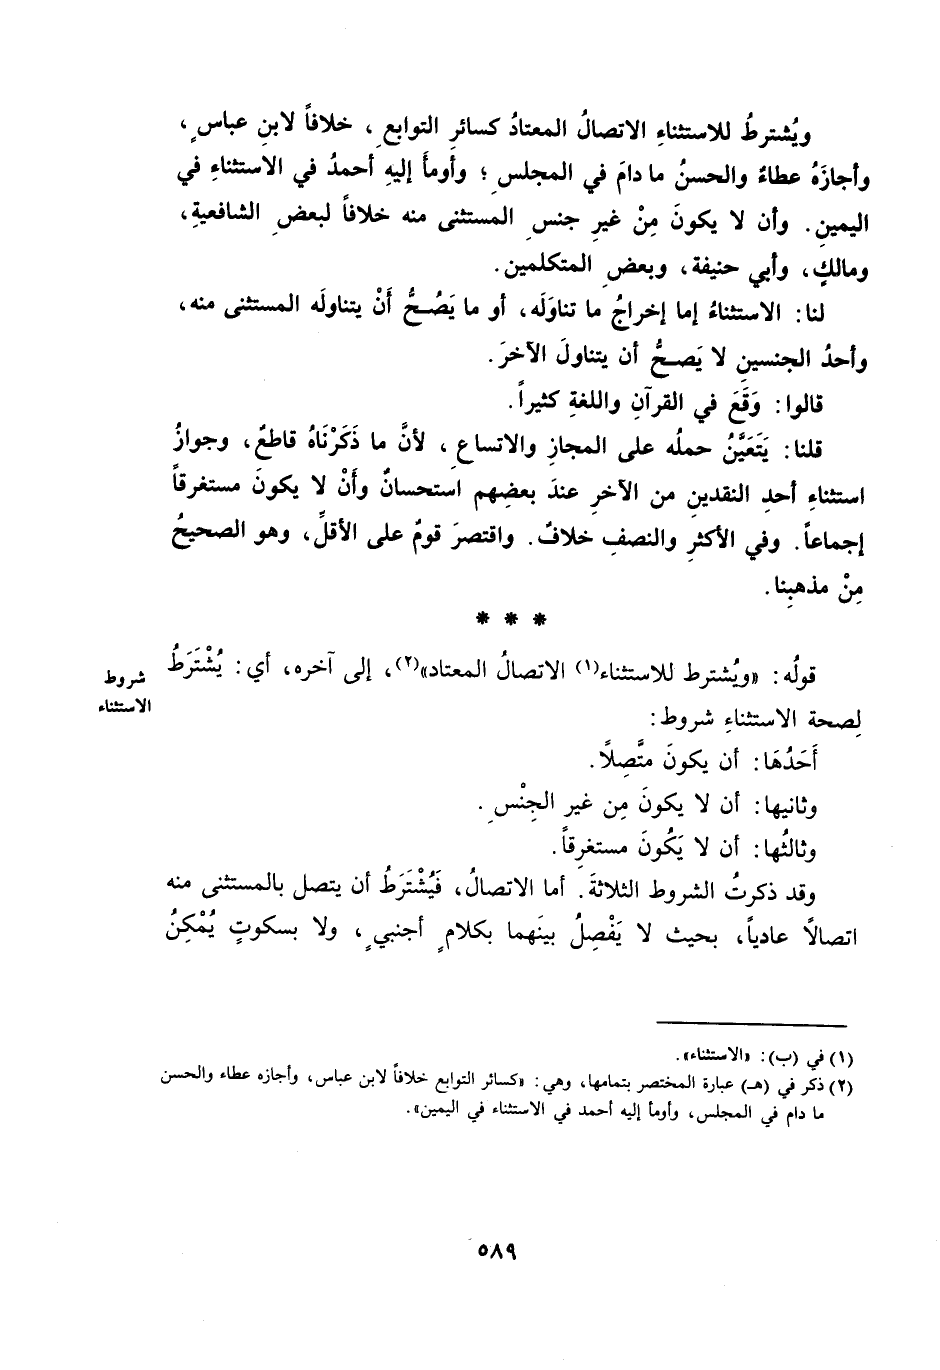 ويُشترطُ للاستثناءِ الاتصالُ المعتادُ كسائرِ التوابعِ، خلافاً لابنِ عباسٍ،
وأجازَهُ عطاءٌ والحسنُ ما دامَ في المجلسِ؛ وأومأَ إليهِ أحمدُ في الاستثناءِ في
اليمينِ. وأن لا يكونَ مِنْ غيرِ جنسِ المستثنى منه خلافاً لبعضِ الشافعيةِ،
ومالكٍ، وأبي حنيفة، وبعضِ المتكلمين.
لنا: الاستثناءُ إما إخراجُ ما تناوَلَه، أو ما يَصُحُّ أَنْ يتناولَه المستثنى منه،
وأحدُ الجنسينِ لا يَصحُّ أن يتناولَ الآخرَ.
قالوا: وَقَعَ في القرآنِ واللغةِ كثيراً.
قلنا: يَتَعَيَّنُ حملُه على المجازِ والاتساعِ، لأنَّ ما ذَكَرْنَاهُ قاطعٌ، وجوازُ
استثناءِ أحدِ النقدينِ من الآخرِ عندَ بعضِهم استحسانٌ وأَنْ لا يكونَ مستغرقاً
إجماعاً. وفي الأكثرِ والنصفِ خلافٌ. واقتصرَ قومٌ على الأقلِّ، وهو الصحيحُ
مِنْ مذهبِنا.
* * *
قولُه: «ويُشترط للاستثناء(١) الاتصالُ المعتاد»(٢)، إلى آخره، أي: يُشْتَرَطُ
شروط
الاستثناء
لِصحة الاستثناءِ شروط:
أَحَدُهَا: أن يكونَ متَّصِلاً.
وثانيها: أن لا يكونَ مِن غير الجِنْسِ.
وثالثُها: أن لا يَكُونَ مستغرِقاً.
وقد ذكرتُ الشروط الثلاثةَ. أما الاتصالُ، فَيُشْتَرَطُ أن يتصل بالمستثنى منه
اتصالاً عادياً، بحيث لا يَفْصِلُ بينَهما بكلامٍ أجنبيٍ، ولا بسكوتٍ يُمْكِنُ
(١) في (ب): «الاستثناء».
(٢) ذكر في (هـ) عبارة المختصر بتمامها، وهي: «كسائر التوابع خلافاً لابن عباس، وأجازه عطاء والحسن
ما دام في المجلس، وأومأ إليه أحمد في الاستثناء في اليمين».
٥٨٩